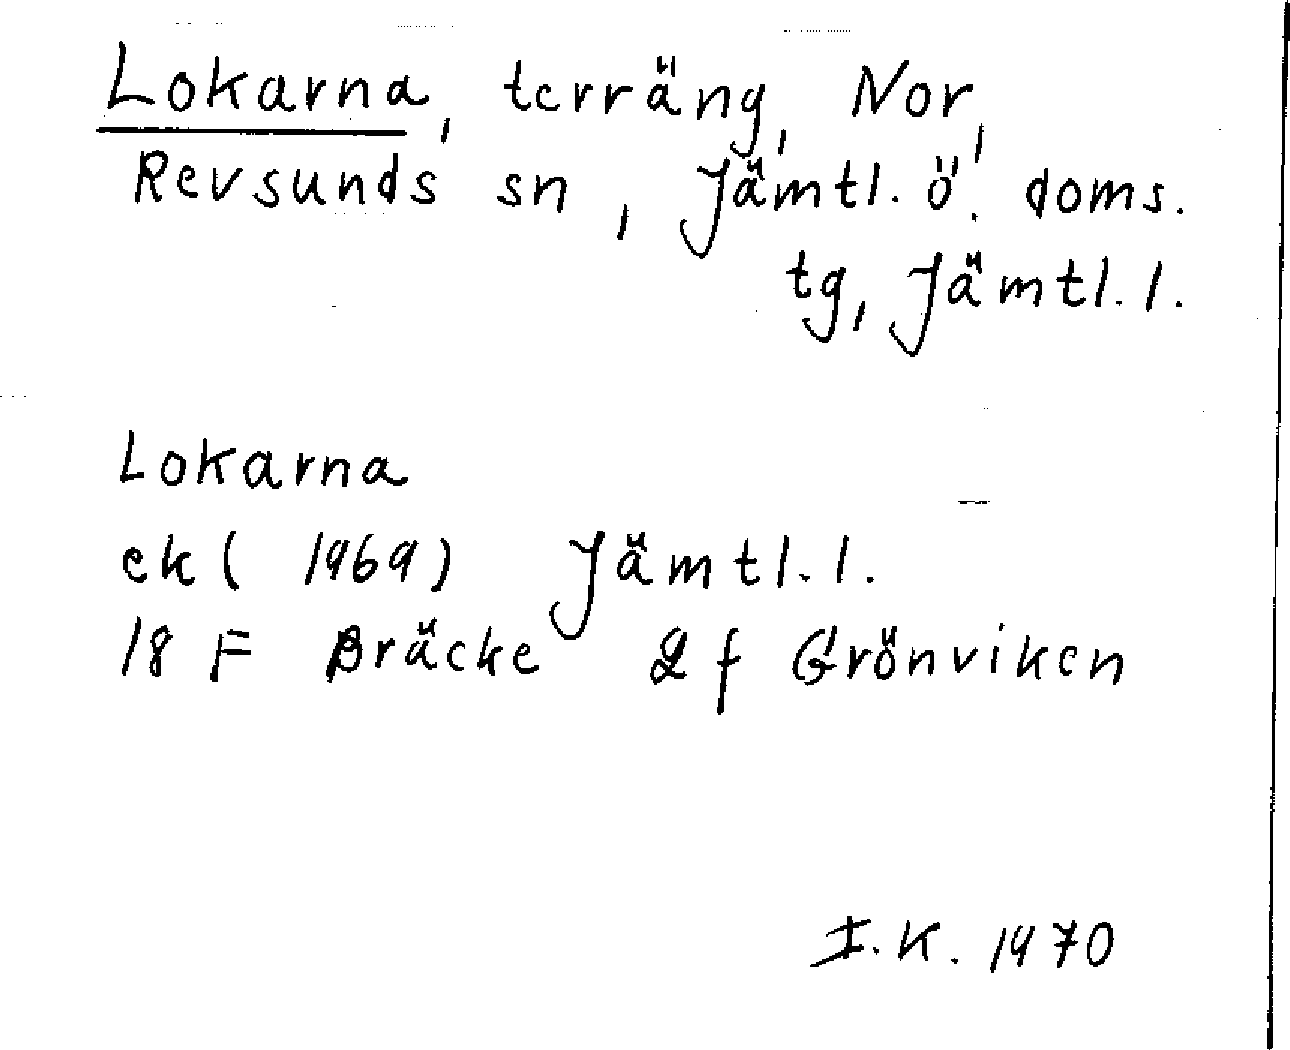 Lokarna, terräng, Nor,
Revsunds sn, Jämtl. ö. doms.
tg, Jämtl. l.
Lokarna
ek (1969) Jämtl. l.
18 F Bräcke 2 f Grönviken
I. K. 1970